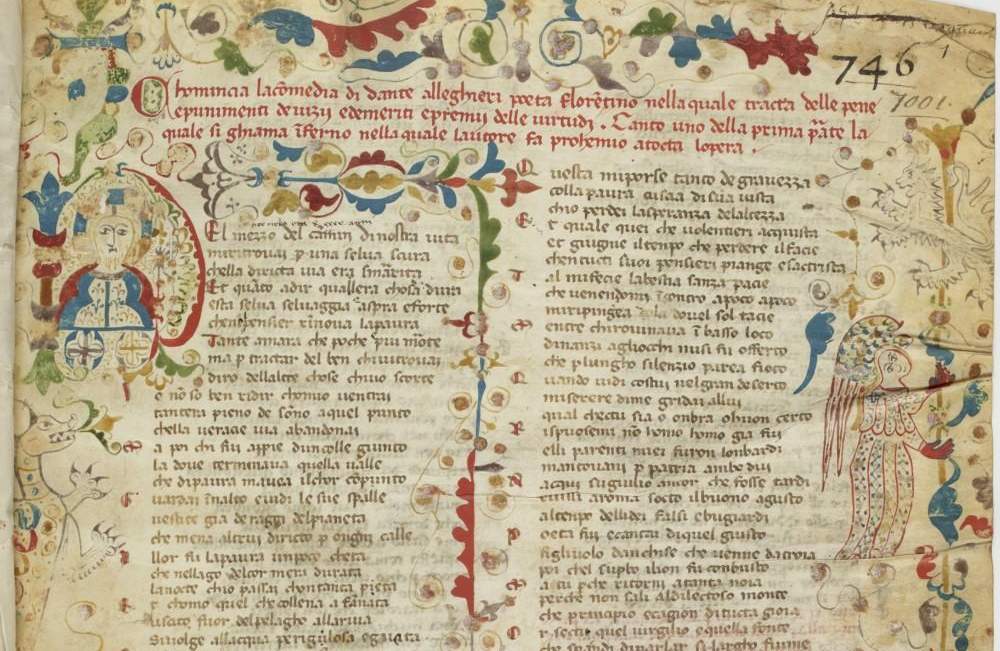 746
7001.
Chomincia lacõmedia di dante alleghieri poeta florẽtino nella quale tracta delle pene
epunimenti de vizii edemeriti epremii delle virtudi . Canto uno della prima pãte la
quale si ghiama ĩferno nella quale lautore fa prohemio atocta lopera .
Nel mezzo del camin di nostra vita
mi ritrovai p una selva scura
chella diricta via era smarita
Et quãto adir quallera chosa dura
esta selva selvaggia aspra eforte
chenel pensier rinova lapaura
Tante amara che poche piu morte
ma p tractar del ben chivi trovai
diro dellaltre chose chivio scorte
o nõ so ben ridir chomio ventrai
tantera pieno de sõno aquel punto
chella verace via abandonai
a poi chi fui appie duncolle giunto
la dove terminava quella valle
che dipaura mavea ilchor cõpunto
uardai ĩnalto evidi le sue spalle
vestite gia de raggi delpianeta
che mena altrui diricto p ongni calle
llor fu lapaura unpoco cheta
che nellago delcor mera durata
lanocte chio passai chontanta pieta
E chomo quel che collena afanata
uscito fuor delpelagho allariva
sivolge allacqua perigulosa eguata
Questa miporse tanto de gravezza
colla paura cuscia di sua vista
chio perdei lasperanza delaltezza
E quale quei che volentieri acquista
et giugne iltempo che perdere ilfacie
chentucti suoi pensieri piange esactrista
Tal mifecie labestia sanza pacie
che venendomi ĩcontro apoco apoco
miripingea dovel sol tacie
entre chirovinava ĩ basso loco
dinanzi agliocchi misi fu offerto
che plungho silenzio parea fioco
Quando vidi costui nelgran deserto
miserere dime gridai allui
qual chectu sia o onbra ohuon certo
Rispuosemi nõ homo homo gia fui
elli parenti miei furon lonbardi
mantovani p patria ambo dui
Nacqui sugiulio amor che fosse tardi
evissi aroma socto ilbuono agusto
altenpo dellidei falsi ebugiardi
Poeta fui ecantai diquel giusto
figliuolo danchise che venne datroia
poi chel supbo ilion fu conbusto
a tu pche ritorni atanta noia
perche non sali aldilectoso monte
che principio ecagion ditucta gioia
r sectu quel virgilio equella fonte
che spandi diparlar si largho fiume